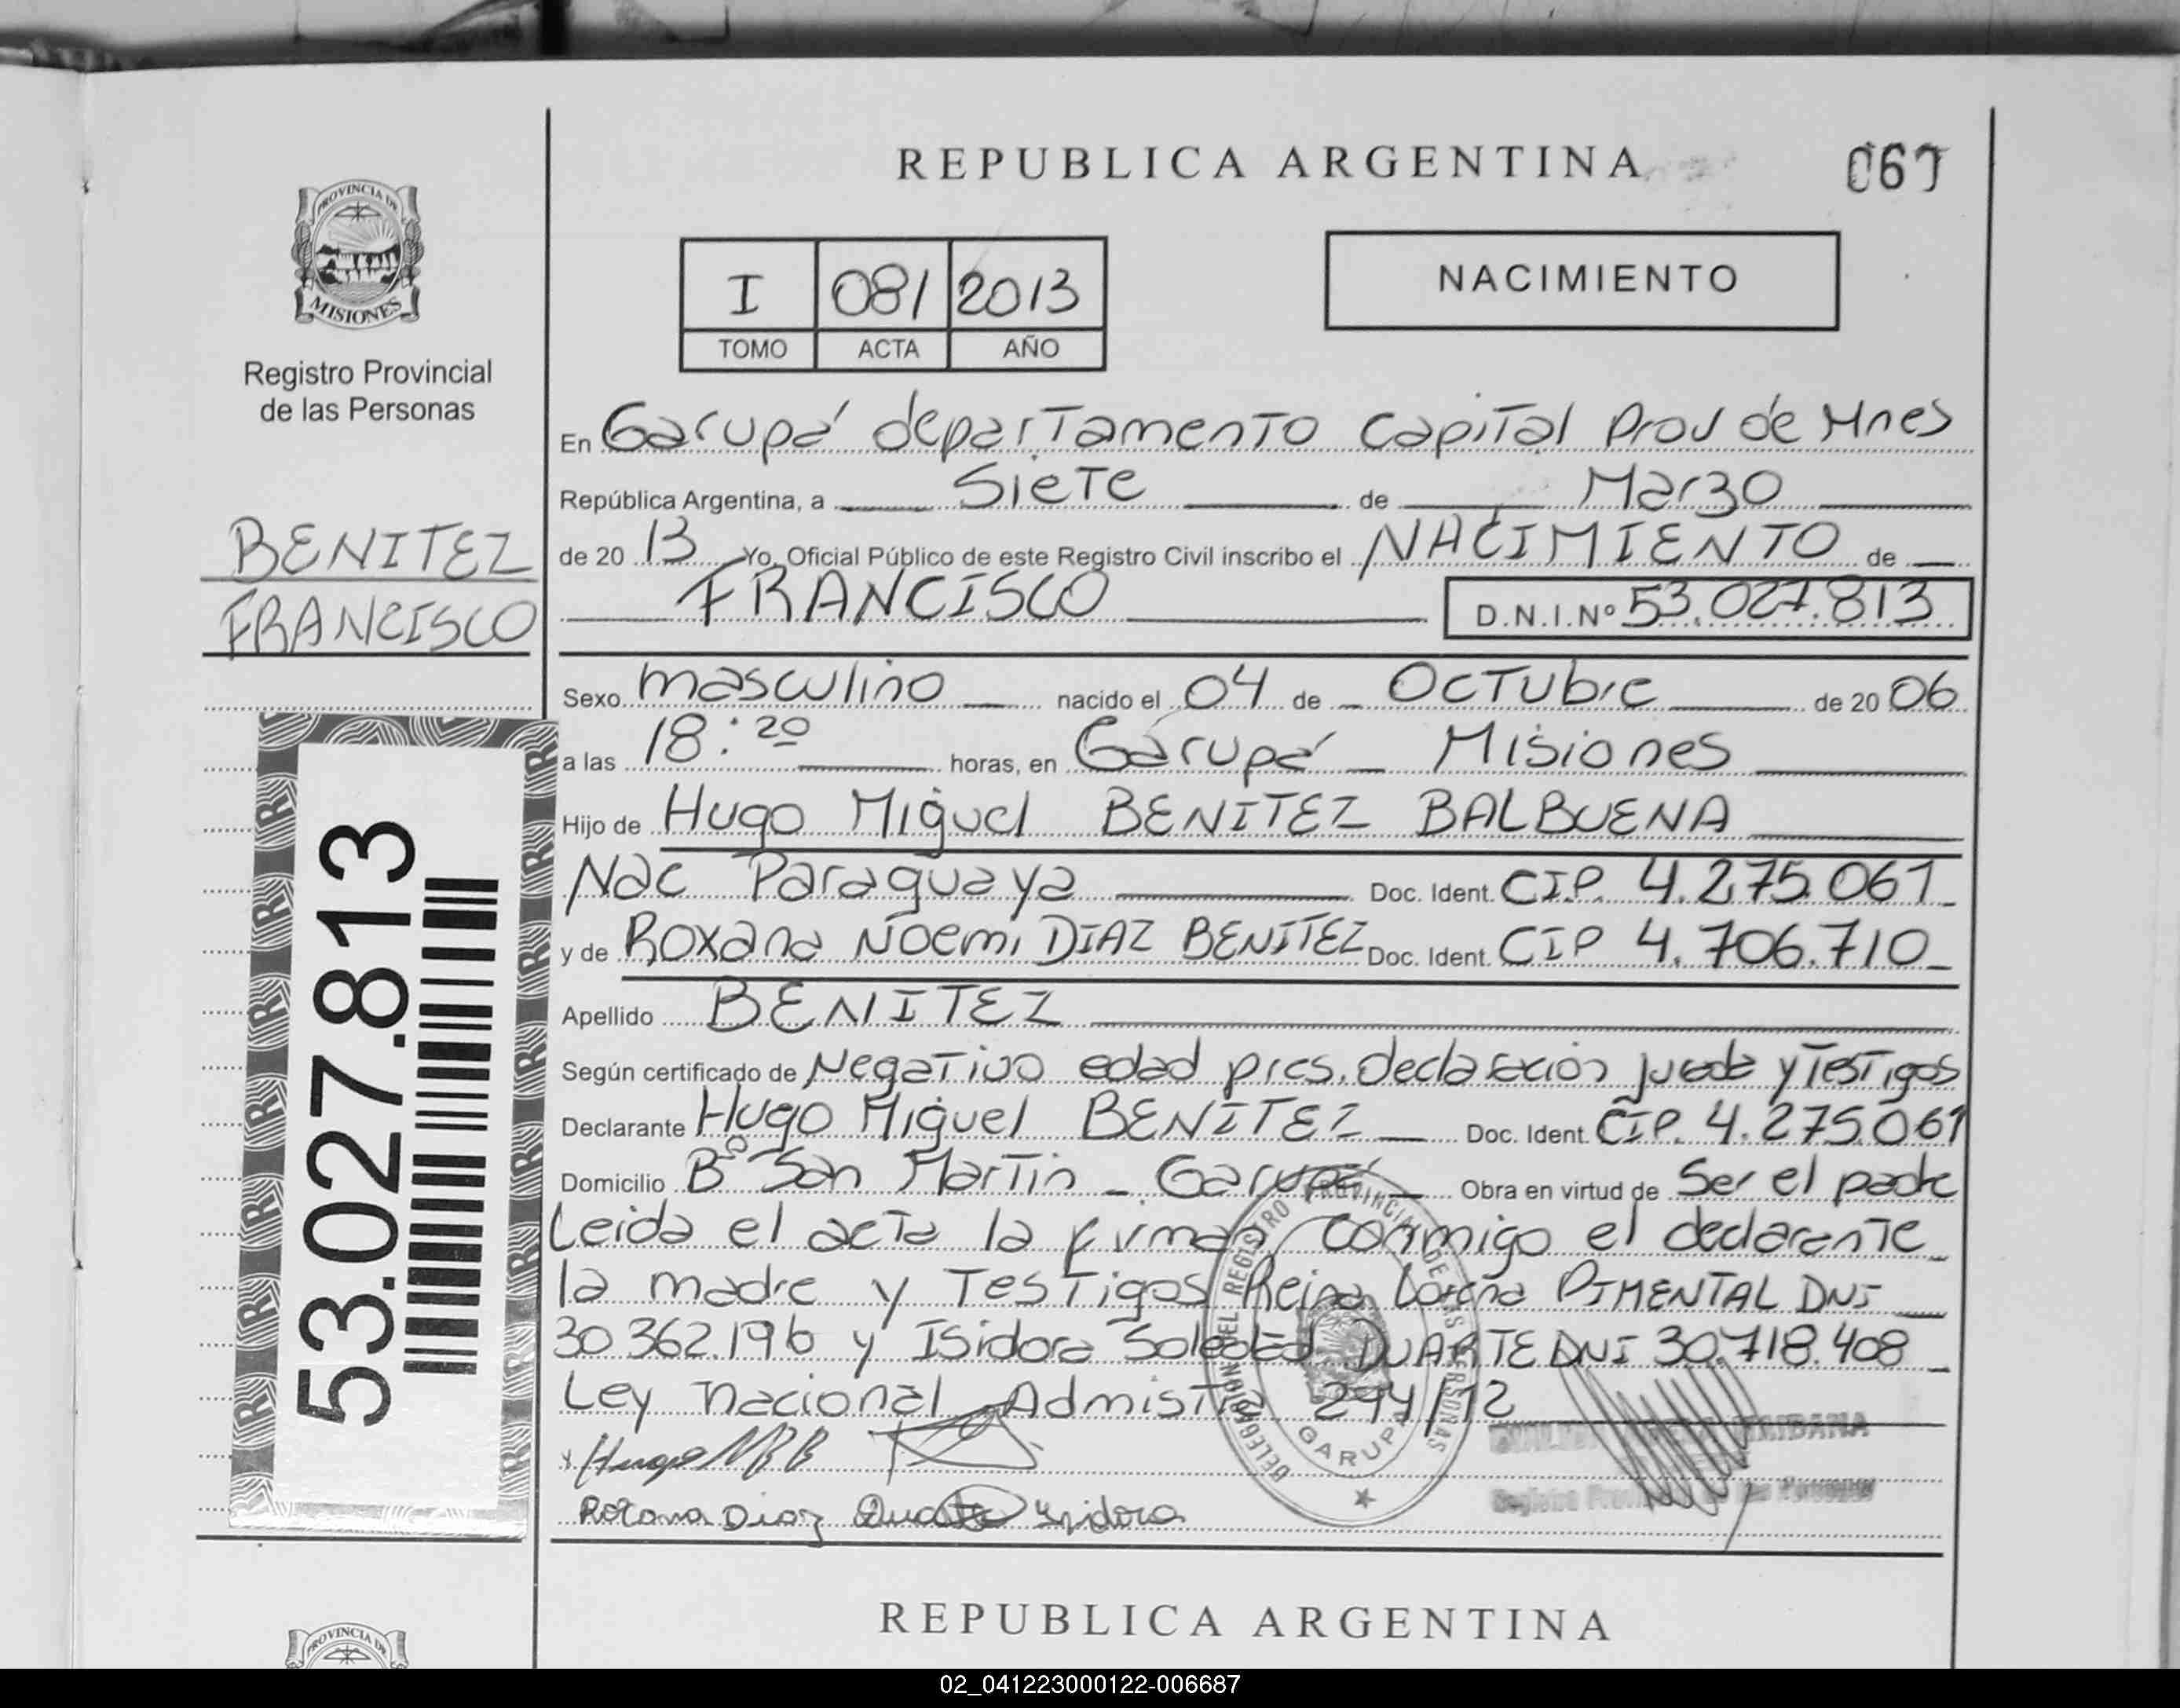 REPUBLICA ARGENTINA
PROVINCIA DE
MISIONES
Registro Provincial
de las Personas
I 081 2013
TOMO ACTA AÑO
NACIMIENTO
En Garupá departamento Capital Prov de Mnes
República Argentina, a Siete de Marzo
de 20 13 Yo, Oficial Público de este Registro Civil inscribo el NACIMIENTO de
BENITEZ
FRANCISCO
FRANCISCO D.N.I.Nº 53.027.813
Sexo masculino nacido el 04 de Octubre de 20 06
a las 18:20 horas, en Garupá _ Misiones
Hijo de Hugo Miguel BENITEZ BALBUENA
Nac Paraguaya Doc. Ident. C.I.P. 4.275.061
y de Roxana Noemi DIAZ BENITEZ Doc. Ident. CIP 4.706.710
Apellido BENITEZ
Según certificado de Negativo edad pres. declaración jurada y Testigos
Declarante Hugo Miguel BENITEZ Doc. Ident. CIP. 4.275.061
Domicilio Bº San Martin _ Garupá Obra en virtud de Ser el padre
Leida el acta la firman conmigo el declarante
la madre y Testigos Reina Lorena PIMENTAL DNI
30.362.196 y Isidora Soledad DUARTE DNI 30.718.408
Ley nacional Admist. 294/12
53.027.813
Hugo MBB
Roxana Diaz Duarte Isidora
DELEGACION DEL REGISTRO PROVINCIAL DE LAS PERSONAS
GARUPA
Registro Provincial de las Personas
REPUBLICA ARGENTINA
PROVINCIA DE
02_041223000122-006687